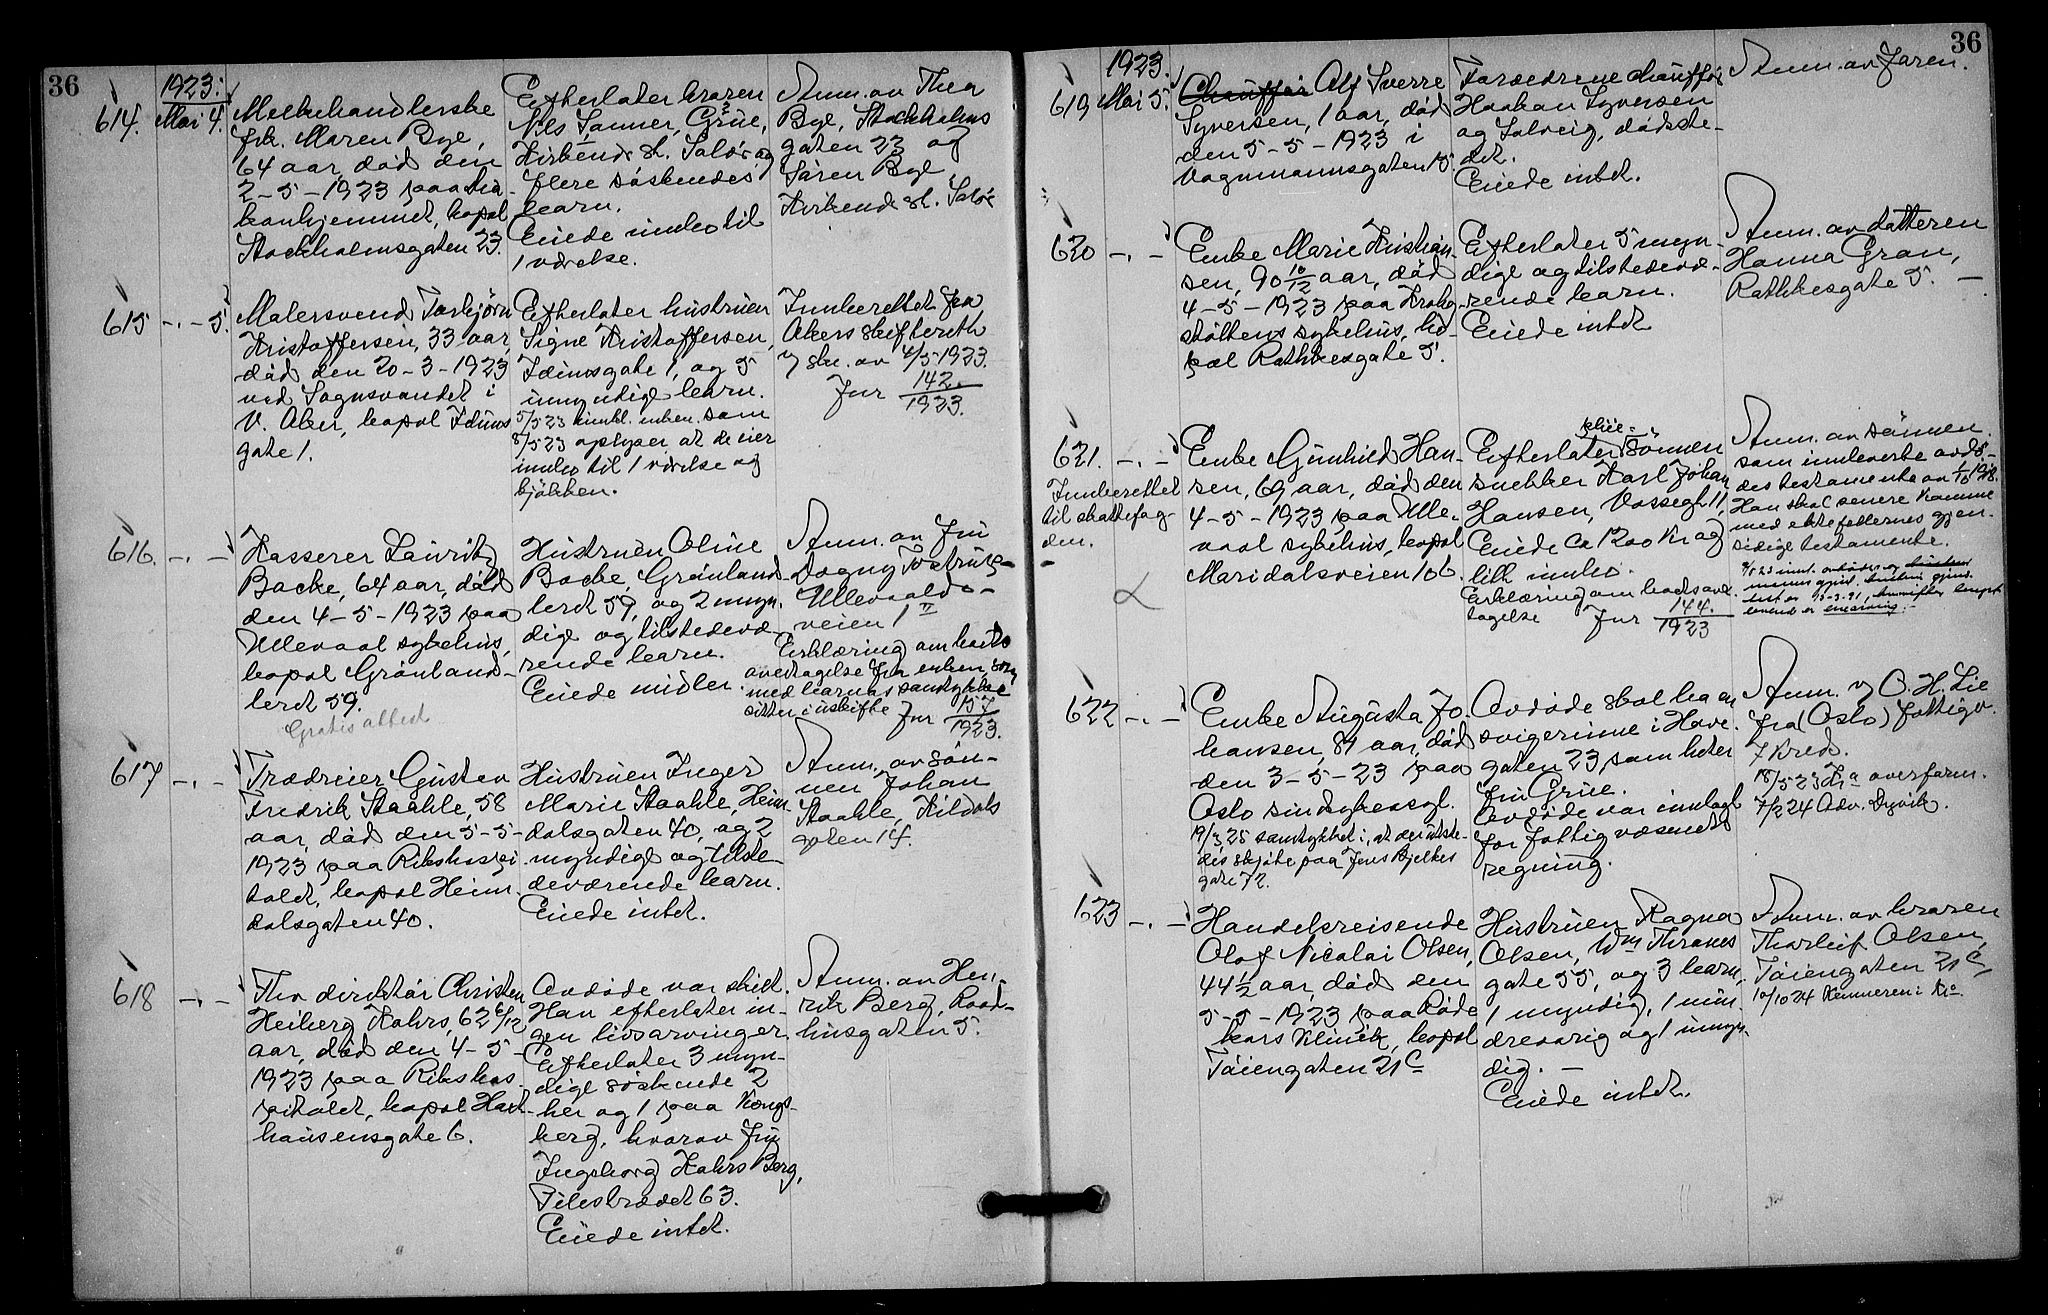 36
1923:
614. Mai 4.
Melkehandlerske
frk. Maren Bye,
64 aar, død den
2-5-1923 paa Dia-
konhjemmet, bopæl
Stockholmsgaten 23.
Efterlater broren
Nils Tanner, Grue,
Kirkenær st. Solør og
flere søskendes
barn.
Eiede innbo til
1 værelse.
Anm. av Thea
Bye, Stockholms
gaten 23 og
Søren Bye
Kirkenær st. Solør
615 -"- 5.
Malersvend Torbjørn
Kristoffersen, 33 aar,
død den 20-3-1923
ved Sognsvandet i
V. Aker, bopæl Iduns
gate 1.
Efterlater hustruen
Signe Kristoffersen,
Idunsgate 1, og 5
umyndige barn.
5/5 23 innk. enken som
8/5 23 oplyser at de eier
innbo til 1 værelse og
kjøkken.
Innberettet fra
Akers skifterett
i skr. av 4/5 1923.
Jnr 142./1923.
616. -"-
Kasserer Lauritz
Backe, 64 aar, død
den 4-5-1923 paa
Ullevaal sykehus,
bopæl Grønland-
leret 59.
Gratis attest
Hustruen Oline
Backe, Grønland
leret 59, og 2 myn-
dige og tilstedevæ-
rende barn.
Eiede midler.
Anm. av Fru
Dagny Tostrup
Ullevaals-
veien 1 II
Erklæring om bo
overtagelse fra enken, som
med barnas samtykke
sitter i uskifte Jnr 157/1923.
617 -"-
Trædreier Gustav
Fredrik Staahle, 58
aar, død den 5-5-
1923 paa Rikshospi
talet, bopæl Heim
dalsgaten 40.
Hustruen Inger
Marie Staahle, Heim
dalsgaten 40, og 2
myndige og tilste-
deværende barn.
Eiede intet.
Anm. av søn-
nen Johan
Staahle, Kildals
gaten 14.
618 -"-
Fhv direktør Christen
Heiberg Kahrs, 62 6/12
aar, død den 4-5-
1923 paa Rikshos
pitalet, bopæl Haxt-
hausensgate 6.
Avdøde var skilt.
Han efterlater in-
gen livsarvinger.
Efterlater 3 myn-
dige søskende 2
her og 1 paa Kongs-
berg, hvorav Fru
Ingeborg Kahrs Berg,
Pilestrædet 63.
Eiede intet.
Anm. av Hen-
rik Berg, Raad-
husgaten 5.
36
1923.
619 Mai 5.
Chauffør Alf Sverre
Syversen, 1 aar, død
den 5-5-1923 i
Vognmannsgaten 15.
Forældrene chauffør
Haakon Syversen
og Solveig, dødsste-
det.
Eiede intet.
Anm. av faren.
620 -"-
Enke Marie Kristian
sen, 90 10/12 aar, død
4-5-1923 paa Krohg-
støttens sykehus, bo-
pæl Rathkesgate 5.
Efterlater 5 myn-
dige og tilstedevæ-
rende barn.
Eiede intet
Anm. av datteren
Hanna Gran,
Rathkesgate 5. -
621. -"-
Innberettet
til skattefog-
den.
Enke Gunhild Han-
sen, 69 aar, død den
4-5-1923 paa Ulle-
vaal sykehus, bopæl
Maridalsveien 106.
Efterlater sønnen
snekker Karl Johan
Hansen, Vossegt 11,
Eiede ca 1200 kr og
litt innbo.
Erklæring om boets over
tagelse Jnr 144./1923
Anm. av sønnen
som innleverte avdø-
des testamente av 1/10 1918.
Han skal senere komme
med ektefellernes gjen-
sidige testamente.
622 -"-
Enke Augusta Jo
hansen, 81 aar, død
den 3-5-23 paa
Oslo sindsykeasyl.
19/3 25 samtykket i, at der utste-
des skjøte paa Jens Bjelkes
gate 72.
Avdøde skal ha en
svigerinne i Have
gaten 23, som heter
Fru Grue.
Avdøde var innlagt
for fattigvæsenets
regning.
Anm. v O. H. Lie
fra (Oslo) fattigv.
7 kreds.
18/5 23 Kr a overform.
7/2 24 Adv. Dyvik.
623 -"-
Handelsreisende
Olaf Nicolai Olsen,
44 1/2 aar, død den
5-5-1923 paa Røde
kors klinik, bopæl
Tøiengaten 21 C
Hustruen Ragna
Olsen, Wm Thranes
gate 55, og 3 barn,
1 myndig, 1 min
dreaarig og 1 umyn-
dig. -
Eiede intet.
Anm. av broren
Thorleif Olsen,
Tøiengaten 21 C,
10/10 24 Kemneren i Kr.a